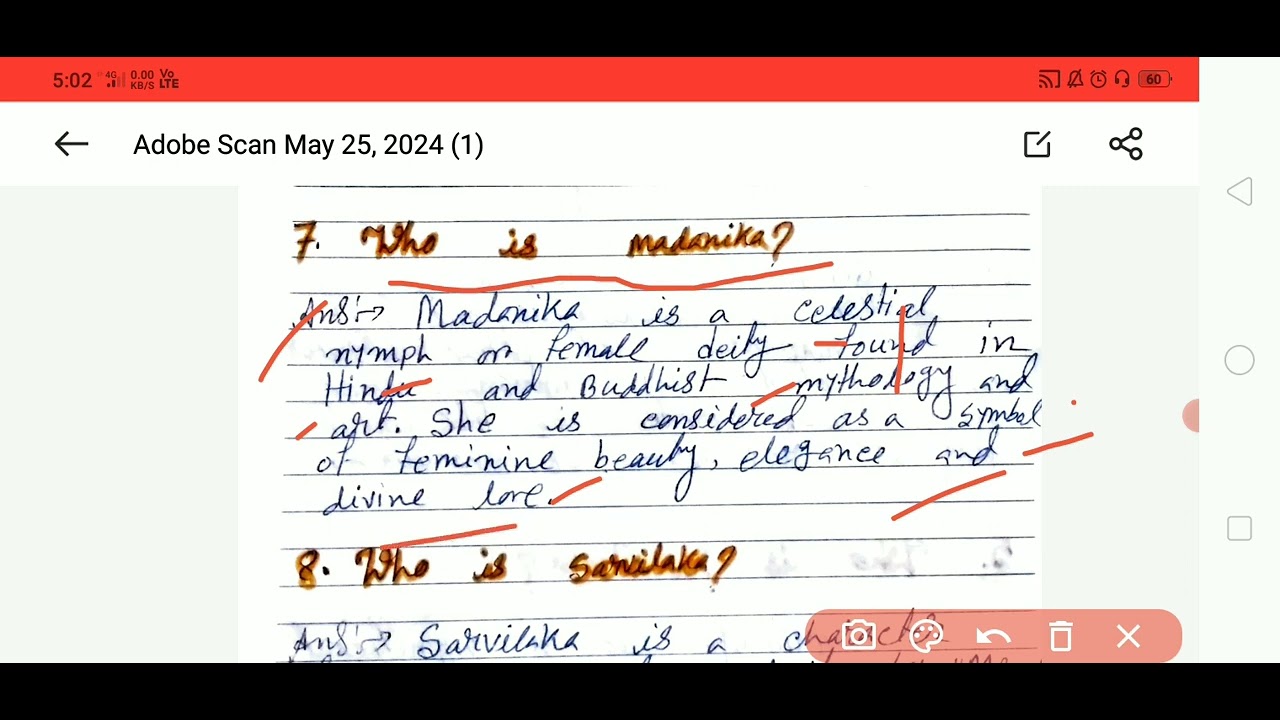 5:02 4G 0.00 KB/S Vo LTE 60
Adobe Scan May 25, 2024 (1)
7. Who is madanika?
Ans:→ Madanika is a celestial
nymph or female deity found in
Hindu and Buddhist mythology and
art. She is considered as a symbol
of feminine beauty, elegance and
divine love.
8. Who is Sarvilaka?
Ans:→ Sarvilaka is a character